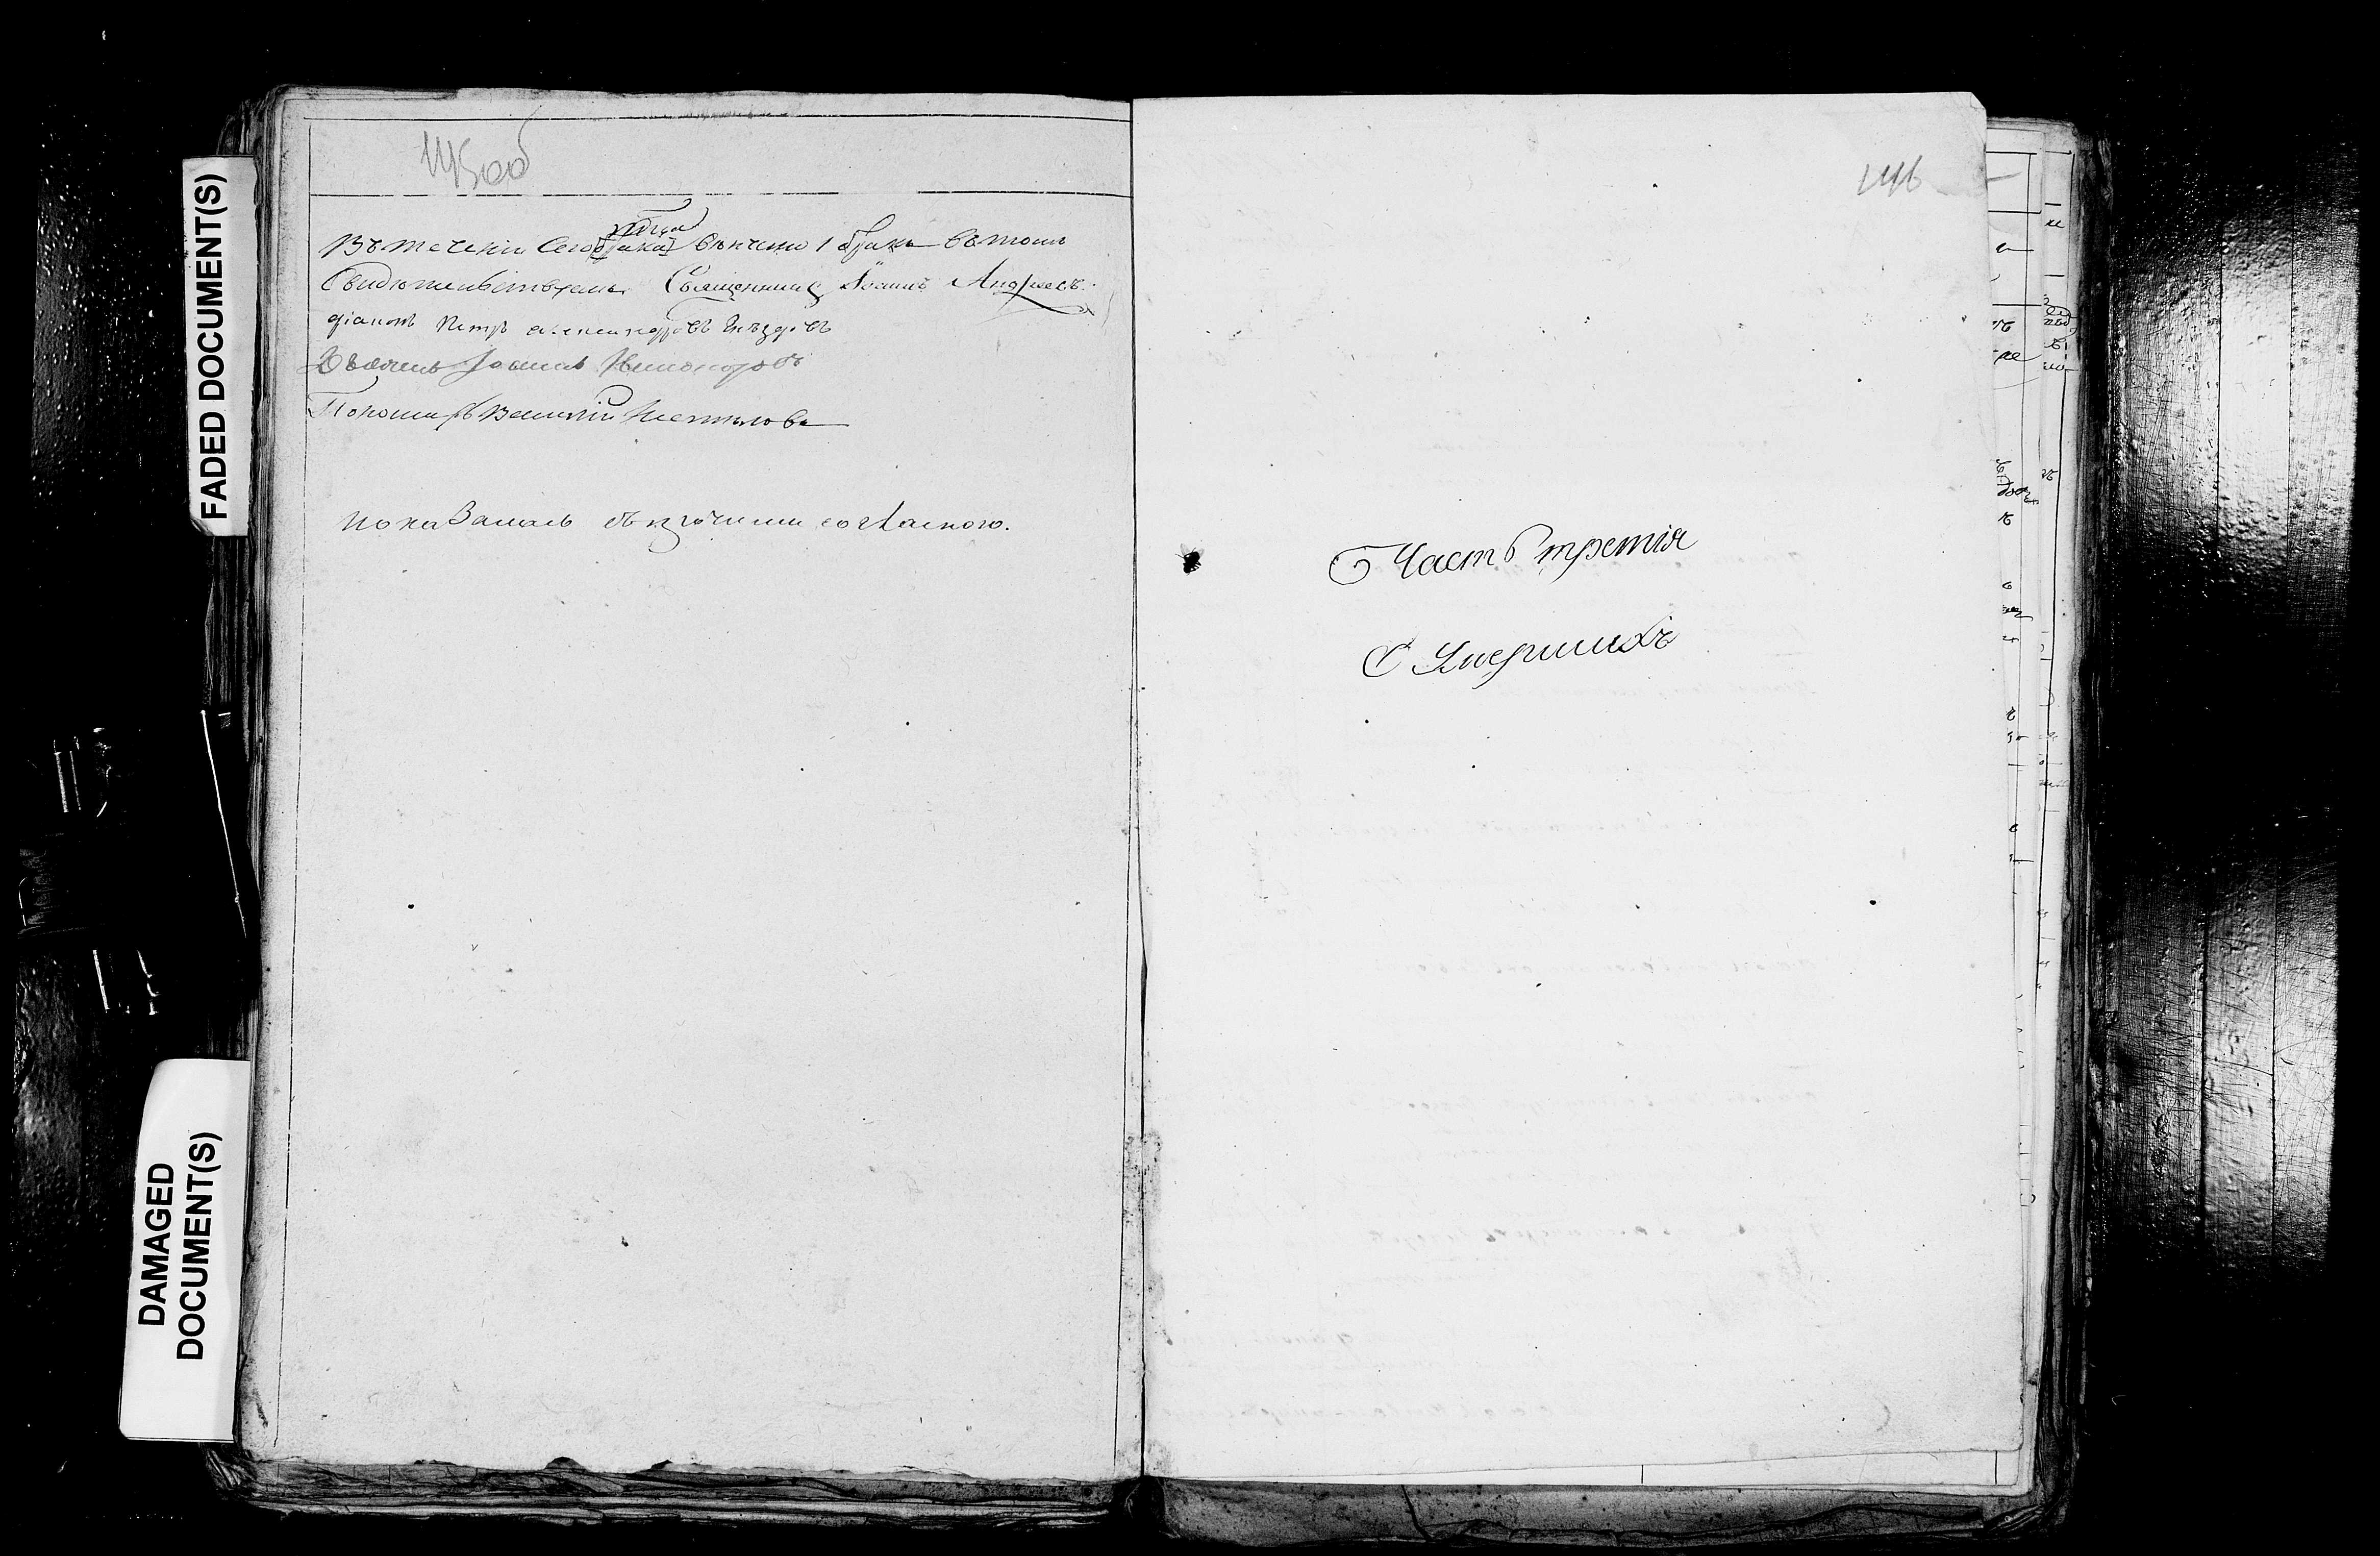 FADED DOCUMENT(S)
DAMAGED
DOCUMENT(S)
145 об
года
Въ течении сего брака венчано 1 бракъ въ томъ
свидетельствуемъ Священникъ Iоаннъ Андреевъ
дiаконъ Петръ александровъ
Дьячекъ Iоаннъ Никифоровъ
Пономарь Василiй
показанiемъ согласного.
146
Часть третiя
О Умершихъ